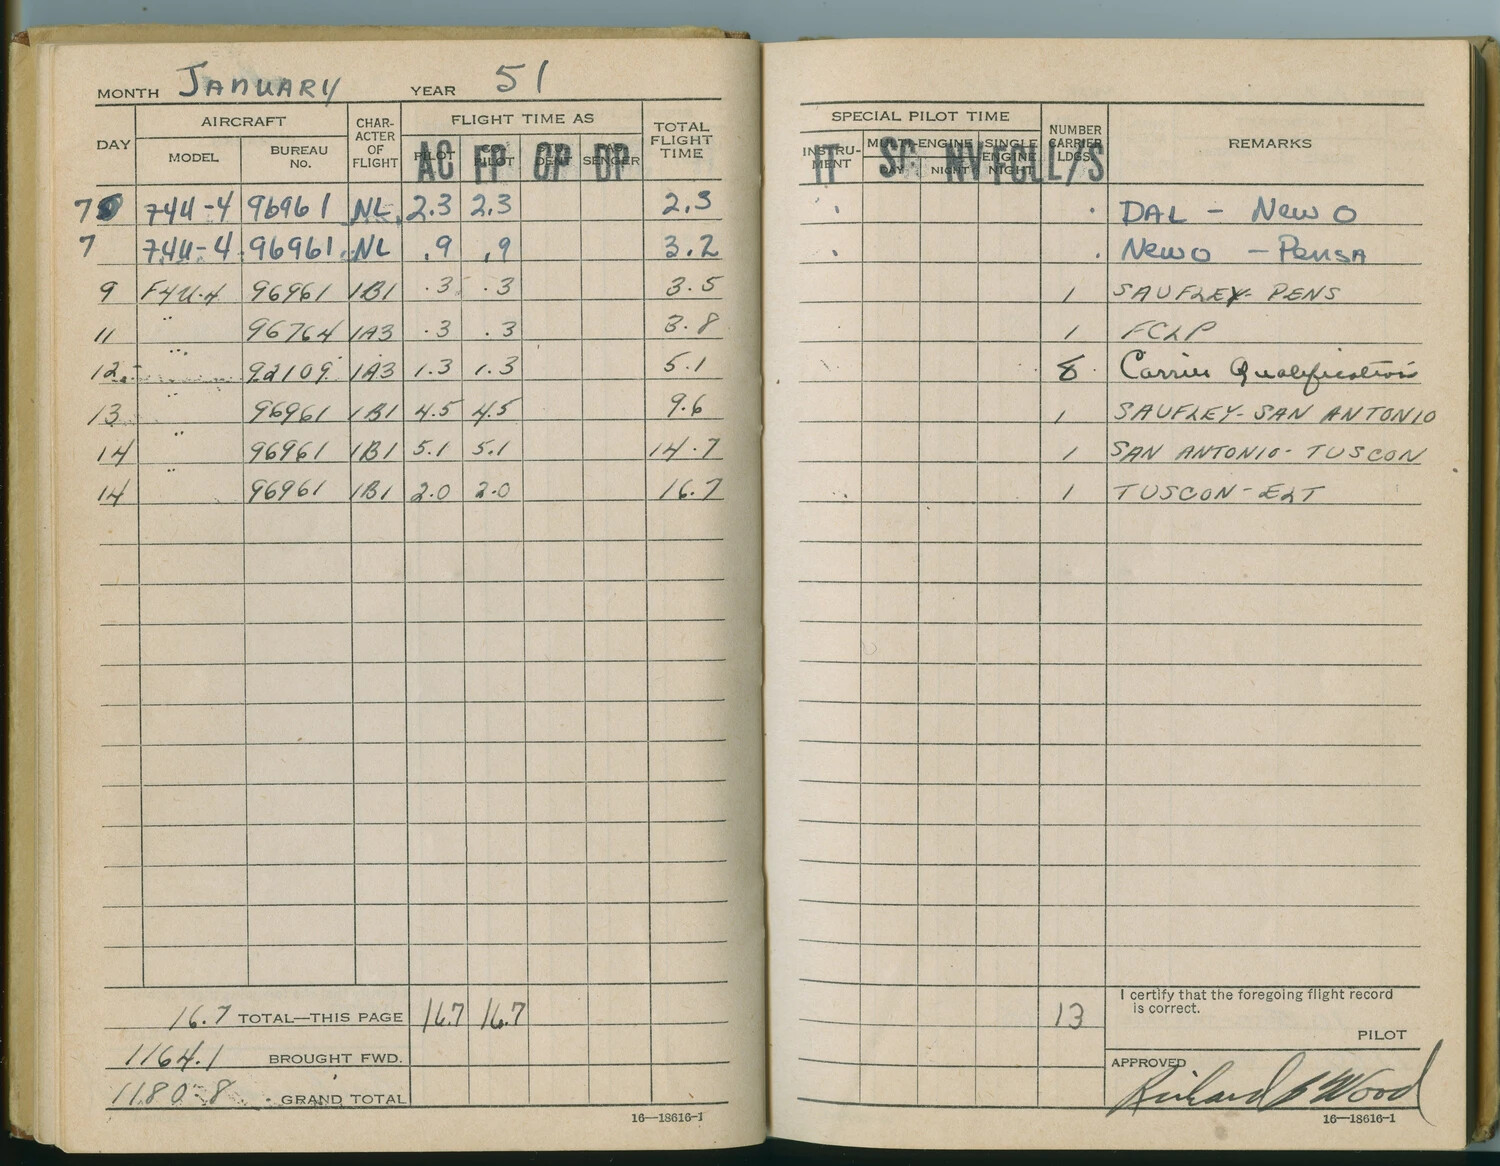 MONTH JANUARY YEAR 51
DAY AIRCRAFT CHAR-ACTER OF FLIGHT FLIGHT TIME AS TOTAL FLIGHT TIME
MODEL BUREAU No. PILOT AC PILOT FP OP SENGER DP
7 F4U-4 96961 NL 2.3 2.3 2.3
7 F4U-4 96961 NL .9 .9 3.2
9 F4U-4 96961 1B1 .3 .3 3.5
11 " 96764 1A3 .3 .3 3.8
12 " 92109 1A3 1.3 1.3 5.1
13 " 96961 1B1 4.5 4.5 9.6
14 " 96961 1B1 5.1 5.1 14.7
14 " 96961 1B1 2.0 2.0 16.7
16.7 TOTAL—THIS PAGE 16.7 16.7
1164.1 BROUGHT FWD.
1180.8 GRAND TOTAL
16—18616-1
SPECIAL PILOT TIME NUMBER CARRIER LDGS. REMARKS
INSTRU-MENT MULTI-ENGINE SINGLE ENGINE NIGHT
DAY NIGHT
IT SC NV FCL L/S
DAL - New O
New O - Pensa
1 SAUFLEY- PENS
1 FCLP
8 Carrier Qualification
1 SAUFLEY- SAN ANTONIO
1 SAN ANTONIO- TUSCON
1 TUSCON- ELT
13
I certify that the foregoing flight record is correct.
PILOT
APPROVED
Richard Wood
16—18616-1